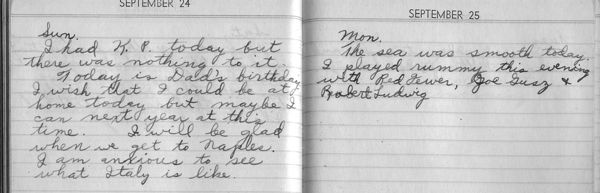 SEPTEMBER 24
Sun.
I had K. P. today but
there was nothing to it.
Today is Dad's birthday
I wish that I could be at
home today but maybe I
can next year at this
time. I will be glad
when we get to Naples.
I am anxious to see
what Italy is like.
SEPTEMBER 25
Mon.
The sea was smooth today.
I played rummy this evening
with Red Fewer, Joe Gusz &
Robert Ludwig